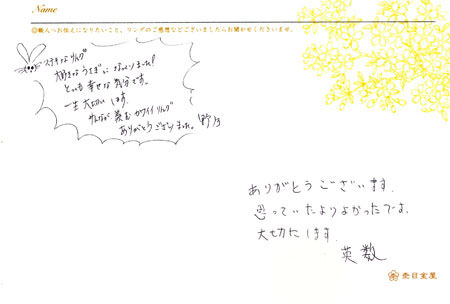 Name
◎職人へお伝えになりたいこと、リングのご感想などございましたらお聞かせくださいませ。
ステキなリング
大好きなうさぎに なってりました!
とっても 幸せな 気分です。
一生 大切に します。
みんなが 羨む カワイイ リング
ありがとうございました。
ありがとうございます。
思っていたよりよかったです。
大切にします。
英数
杢目金屋